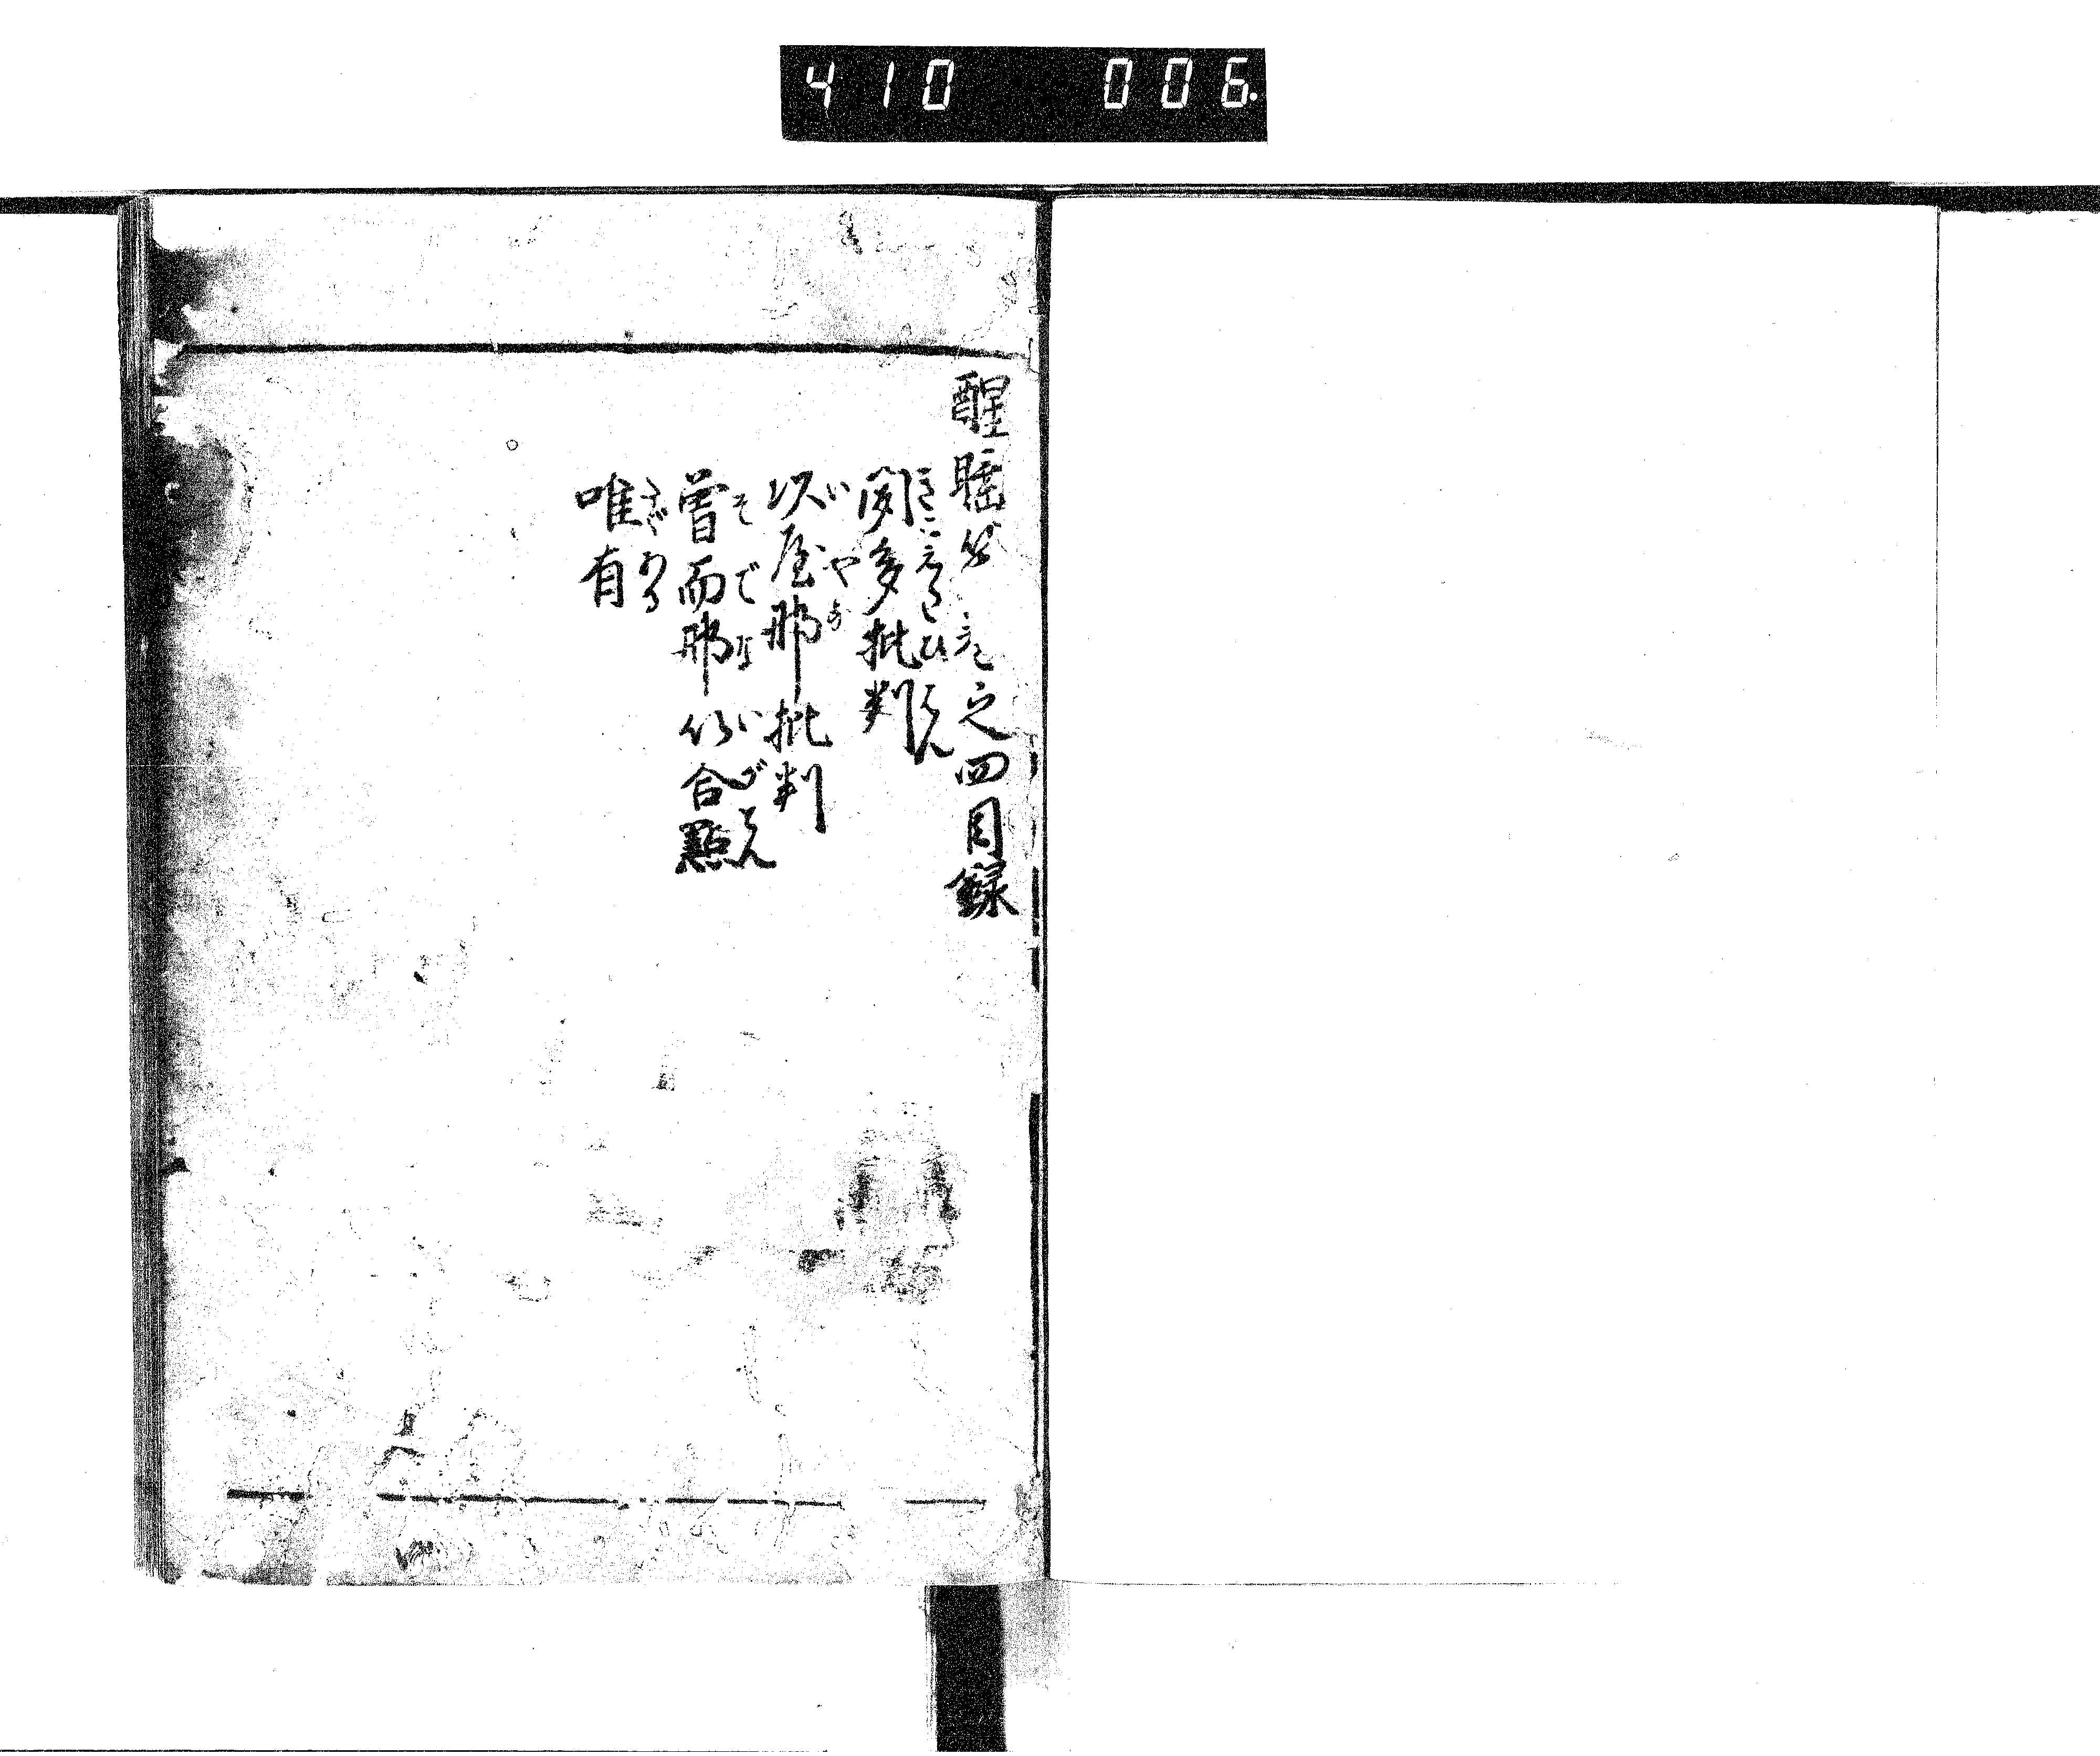 410 006.
醒睡笑巻之四目録
聞多批判
以屋那批判
曽而那以合點
唯有